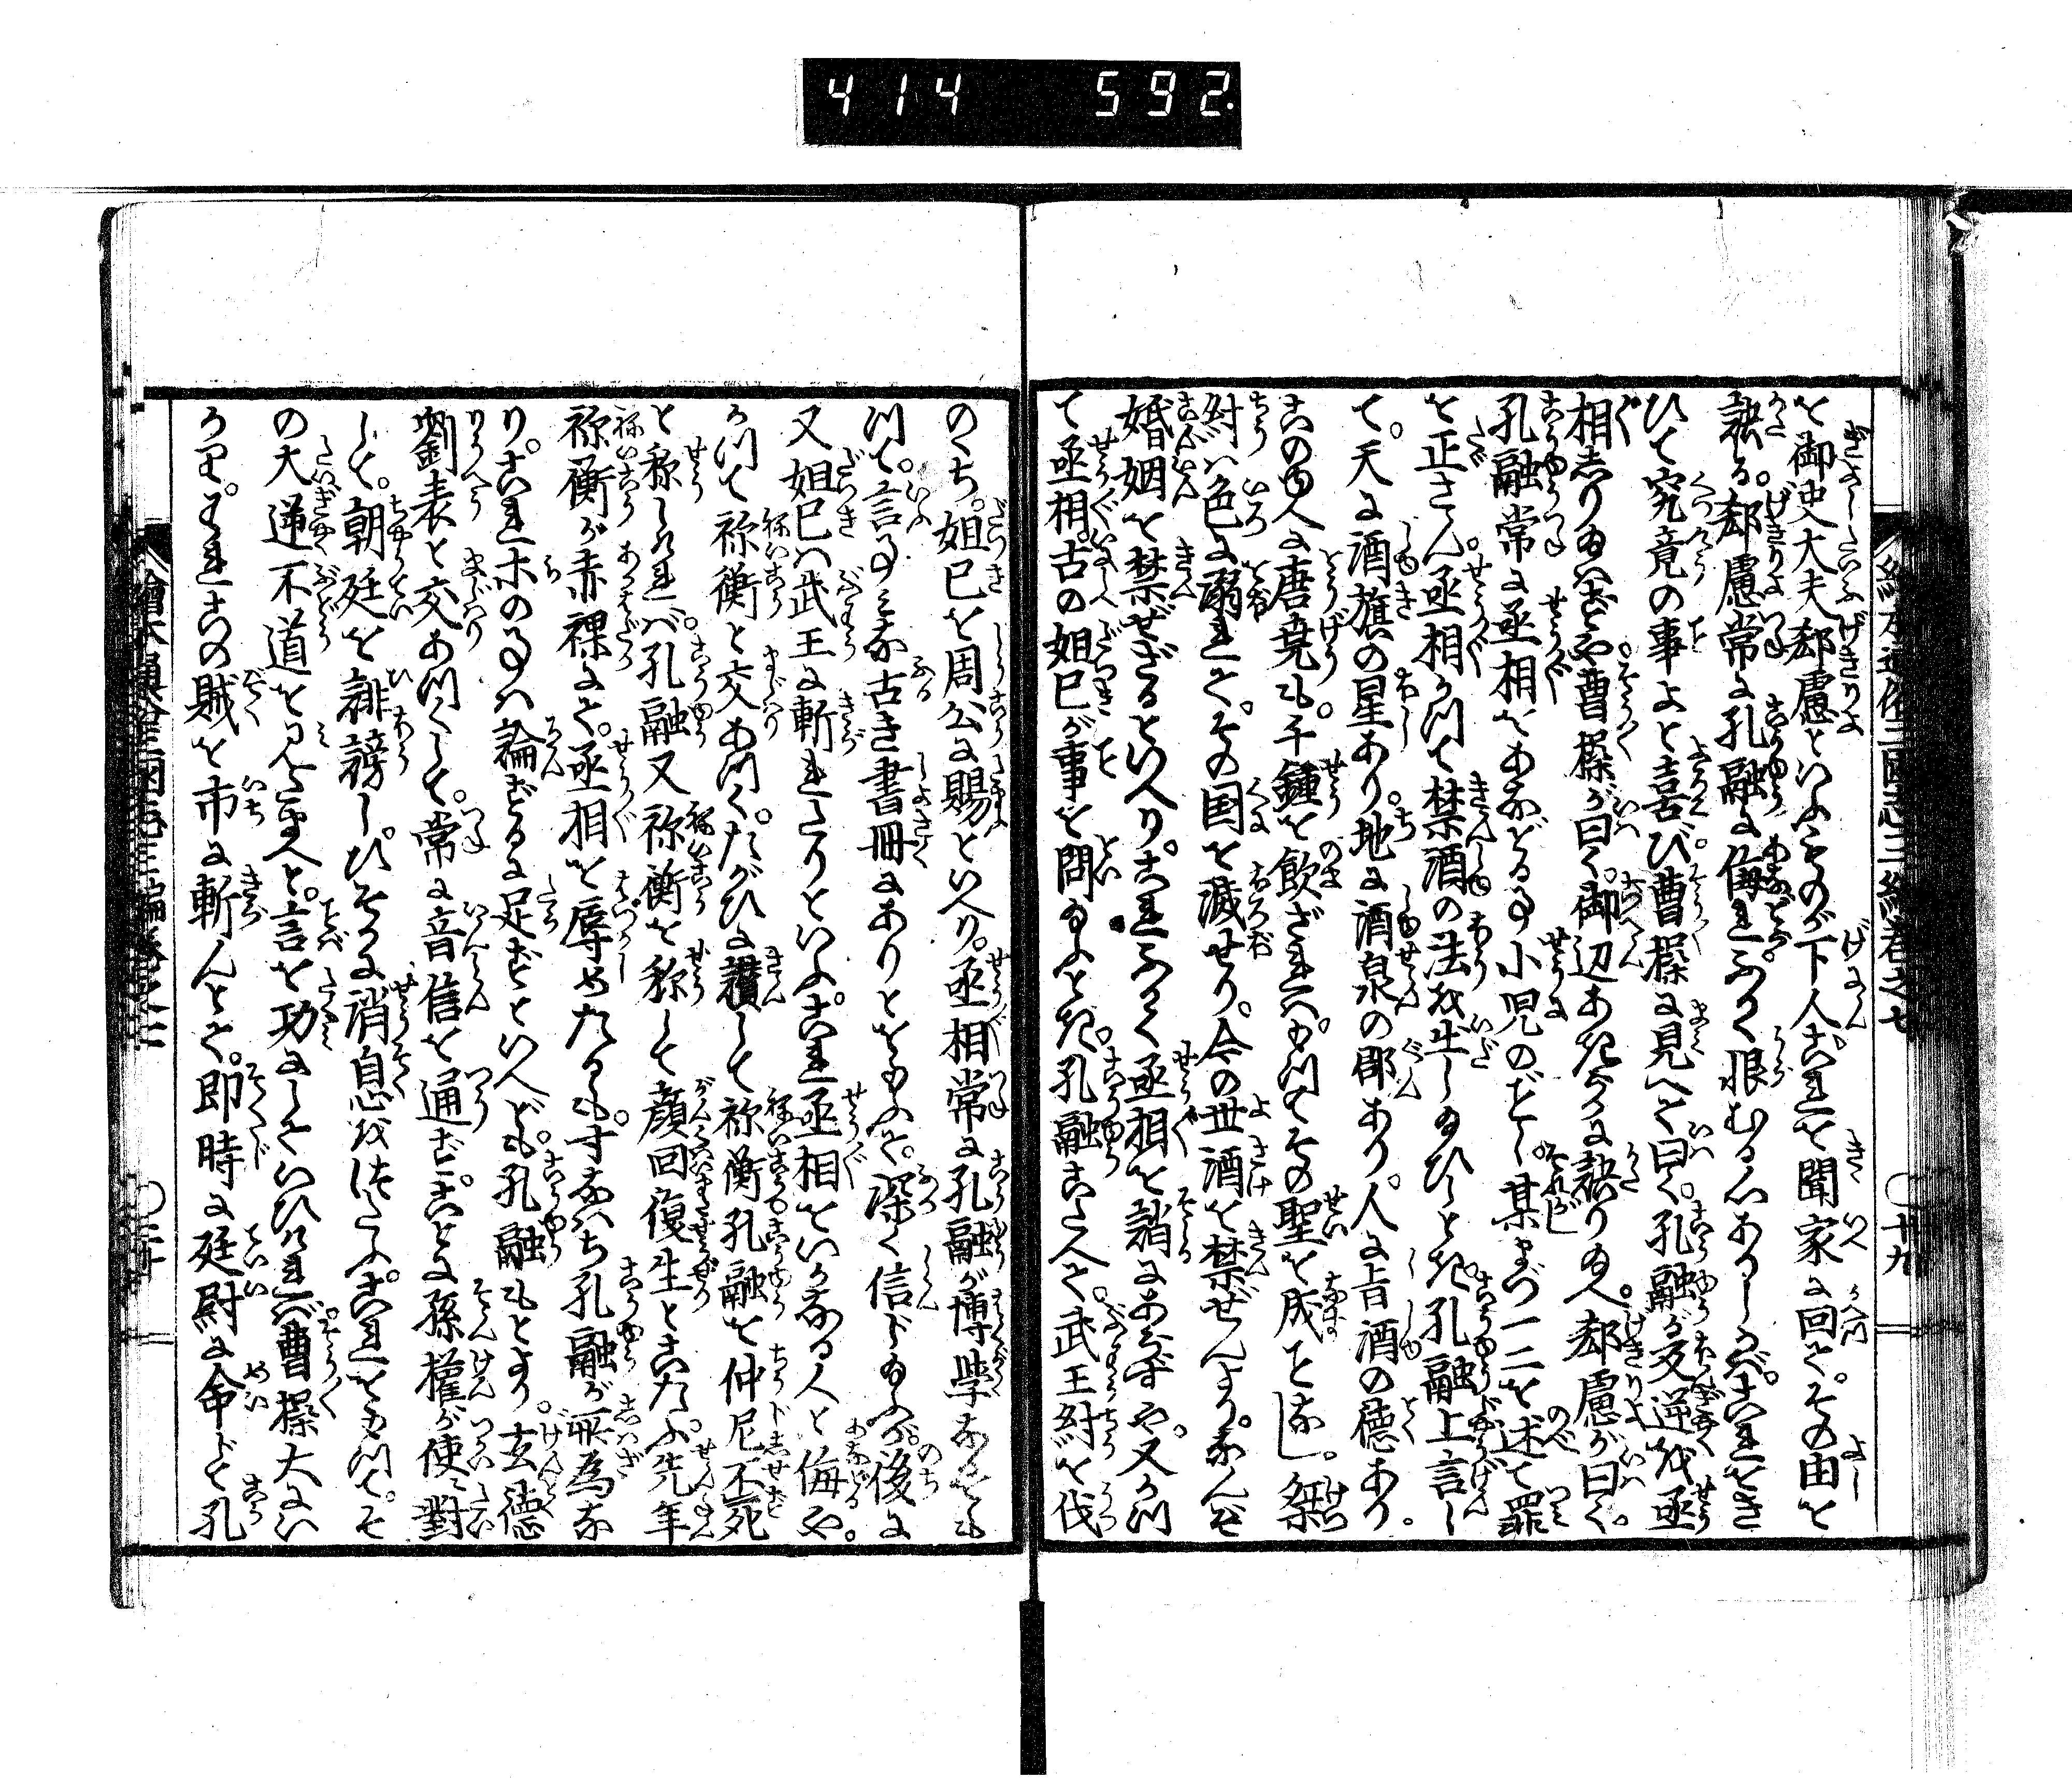 414 592
を御史大夫郄慮といふものが下人。これを聞家に回て。その由を
訣る。郄慮常に孔融に侮れふかく恨むる心ありしかば。これをき
ひて究竟の事よと喜び。曹操に見へて曰く。孔融が反逆を丞
相しり給はずや。曹操が曰く。御辺あきらかに訣り給へ。郄慮が曰く。
孔融常に丞相をあなどる事小児のごとし。某まづ一二を述て罪
を正さん。丞相かつて禁酒の法を生し給ひしとき。孔融上言し
て。天に酒旗の星あり。地に酒泉の郡あり。人に旨酒の徳あり。
この由へに唐堯も。千鍾を飲ざれバ。もつてその聖を成ことなし。桀
紂ハ色に溺れて。その国を滅せり。今の世酒を禁ぜんより。なんぞ
婚姻を禁ぜざるといへり。これふかく丞相を誚にあらずや。又かつ
て丞相。古の妲己が事を問給ふとき。孔融こたへて。武王紂を伐
のち。妲己を周公に賜といへり。丞相常に孔融が博学なるをも
つて。言事みな古き書冊にありとをもふて。深く信じ給ふが。後に
又妲己ハ武王に斬れたりといふ。これ丞相をいかなる人と侮や。
かつて祢衡と交あつく。たがひに讃して祢衡孔融を仲尼不死
と称しけれバ。孔融又祢衡を称して顔回復生とこたふ。先年
祢衡が赤裸にて。丞相を辱めたるも。すなハち孔融が所為な
り。これホの事ハ論ずるに足ずといへども。孔融もとより玄徳
劉表と交あつくして。常に音信を通ず。ことに孫権が使に對
して。朝廷を誹謗し。ひそかに消息をつたふ。これをもつて。そ
の大逆不道を見たまへと。言を功にしていひけれバ。曹操大にい
かり。われこの賊を市に斬んとて。即時に廷尉に命じて孔
繪本通俗三國志三編巻之七 〇十九
〇二十